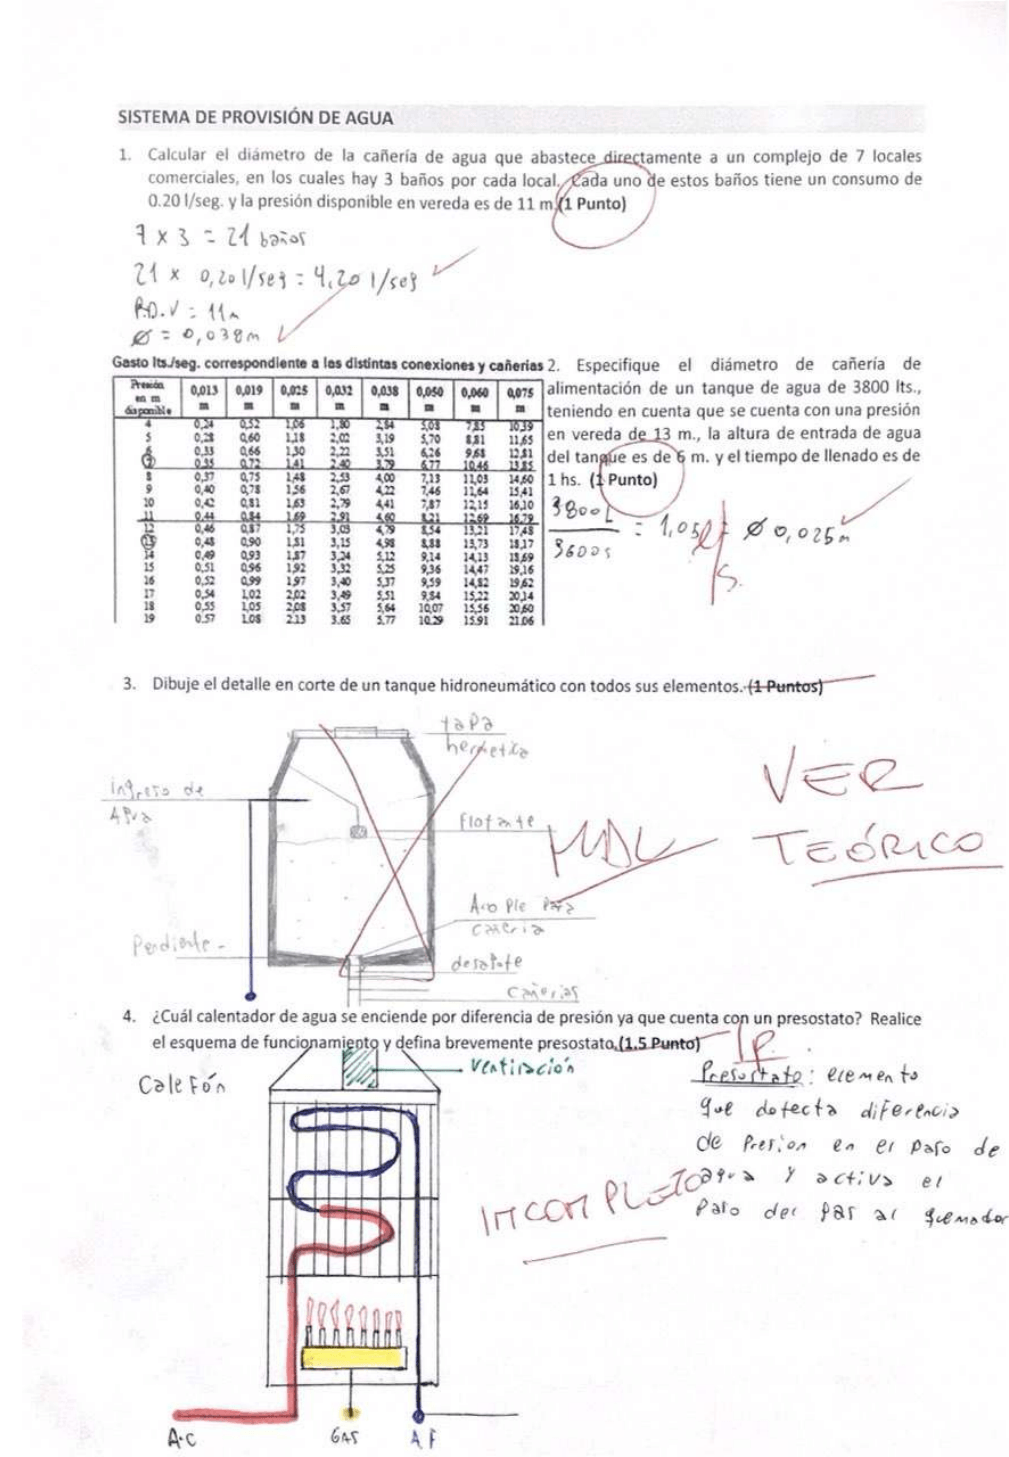 SISTEMA DE PROVISIÓN DE AGUA
1. Calcular el diámetro de la cañería de agua que abastece directamente a un complejo de 7 locales
comerciales, en los cuales hay 3 baños por cada local. Cada uno de estos baños tiene un consumo de
0.20 l/seg. y la presión disponible en vereda es de 11 m.(1 Punto)
7 x 3 = 21 baños
21 x 0,20 l/seg = 4,20 l/seg
P.D.V = 11m
Ø = 0,038m
Gasto lts./seg. correspondiente a las distintas conexiones y cañerías
Presión en m disponible 0,013 m 0,019 m 0,025 m 0,032 m 0,038 m 0,050 m 0,060 m 0,075 m
4 0,24 0,52 1,06 1,80 2,84 5,03 7,85 10,39
5 0,28 0,60 1,18 2,02 3,19 5,70 8,81 11,65
6 0,33 0,66 1,30 2,22 3,51 6,26 9,68 12,81
7 0,35 0,72 1,41 2,40 3,79 6,77 10,46 13,85
8 0,37 0,75 1,48 2,53 4,00 7,13 11,03 14,60
9 0,40 0,78 1,56 2,67 4,22 7,46 11,64 15,41
10 0,42 0,81 1,63 2,79 4,41 7,87 12,15 16,10
11 0,44 0,84 1,69 2,91 4,60 8,21 12,69 16,79
12 0,46 0,87 1,75 3,03 4,79 8,54 13,21 17,48
13 0,48 0,90 1,81 3,15 4,98 8,88 13,73 18,17
14 0,49 0,93 1,87 3,24 5,12 9,14 14,13 18,69
15 0,51 0,96 1,92 3,32 5,25 9,36 14,47 19,16
16 0,52 0,99 1,97 3,40 5,37 9,59 14,82 19,62
17 0,54 1,02 2,02 3,49 5,51 9,84 15,22 20,14
18 0,55 1,05 2,08 3,57 5,64 10,07 15,56 20,60
19 0.57 1.08 2.13 3.65 5.77 10.29 15.91 21.06
2. Especifique el diámetro de cañería de
alimentación de un tanque de agua de 3800 lts.,
teniendo en cuenta que se cuenta con una presión
en vereda de 13 m., la altura de entrada de agua
del tanque es de 6 m. y el tiempo de llenado es de
1 hs. (1 Punto)
3800L
3600s
= 1,05 l/s. Ø 0,025m
3. Dibuje el detalle en corte de un tanque hidroneumático con todos sus elementos. (1 Puntos)
tapa
hermetica
ingreso de
Agua
flotante
MAL
VER
TEÓRICO
Acople para
cañeria
Pendiente
desagote
cañerias
4. ¿Cuál calentador de agua se enciende por diferencia de presión ya que cuenta con un presostato? Realice
el esquema de funcionamiento y defina brevemente presostato.(1.5 Punto)
1P.
Calefón
Ventilación
Presostato: elemento
que detecta diferencia
de Presion en el paso de
agua y activa el
paso del gas al quemador
INCOMPLETO
A.C
GAS
AF